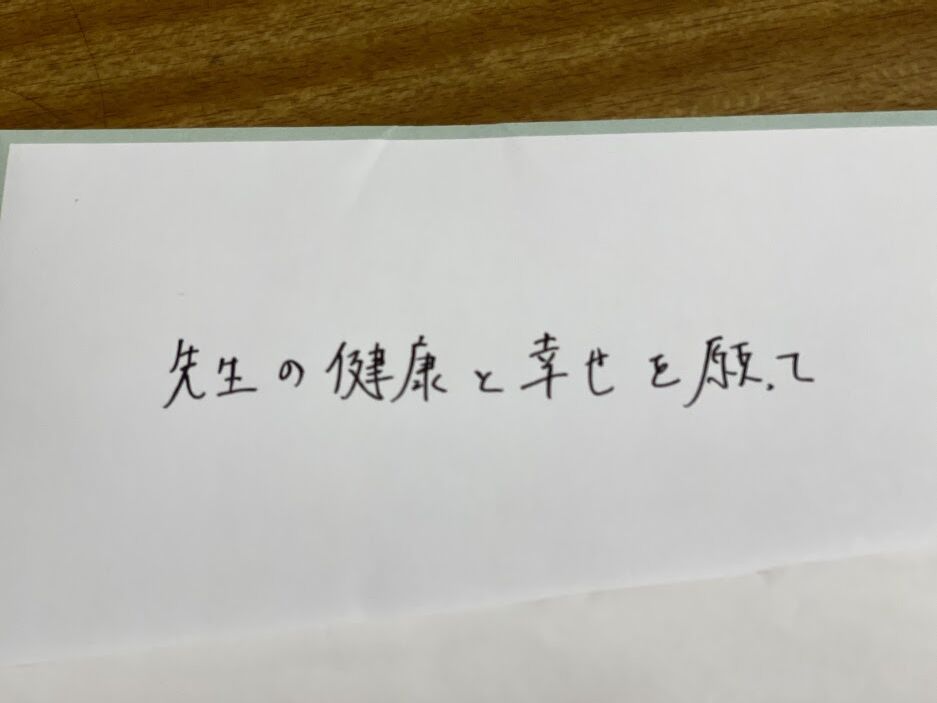 先生の健康と幸せを願って